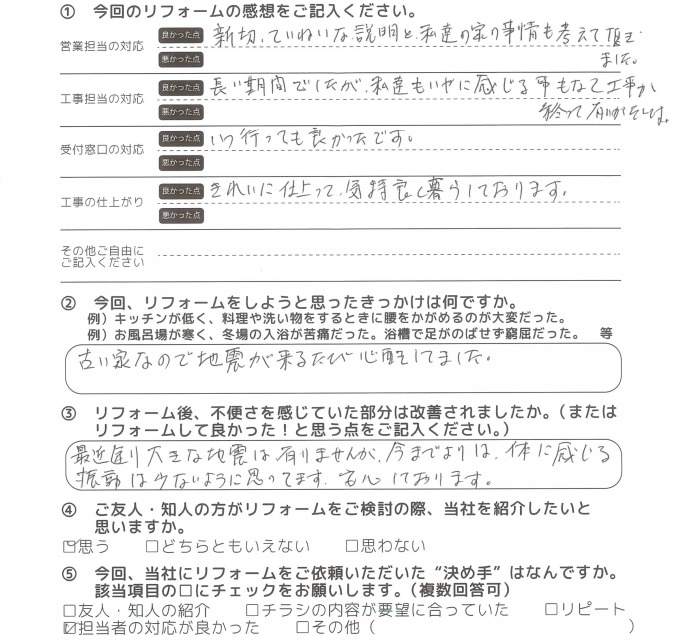 ① 今回のリフォームの感想をご記入ください。
営業担当の対応 良かった点 親切、ていねいな説明と、私達の家の事情も考えて頂き
ました。
悪かった点
工事担当の対応 良かった点 長い期間でしたが、私達もいやに感じる事もなく工事が
悪かった点 終って
受付窓口の対応 良かった点 いつ行っても良かったです。
悪かった点
工事の仕上がり 良かった点 きれいに仕上って、気持良く暮らしております。
悪かった点
その他ご自由に
ご記入ください
② 今回、リフォームをしようと思ったきっかけは何ですか。
例）キッチンが低く、料理や洗い物をするときに腰をかがめるのが大変だった。
例）お風呂場が寒く、冬場の入浴が苦痛だった。浴槽で足がのばせず窮屈だった。 等
古い家なので地震が来るたび心配してました。
③ リフォーム後、不便さを感じていた部分は改善されましたか。（または
リフォームして良かった！と思う点をご記入ください。）
最近余り大きな地震は有りませんが、今までよりは、体に感じる
振動は少ないように思ってます。安心しております。
④ ご友人・知人の方がリフォームをご検討の際、当社を紹介したいと
思いますか。
☑思う □どちらともいえない □思わない
⑤ 今回、当社にリフォームをご依頼いただいた“決め手”はなんですか。
該当項目の□にチェックをお願いします。（複数回答可）
□友人・知人の紹介 □チラシの内容が要望に合っていた □リピート
☑担当者の対応が良かった □その他（ ）